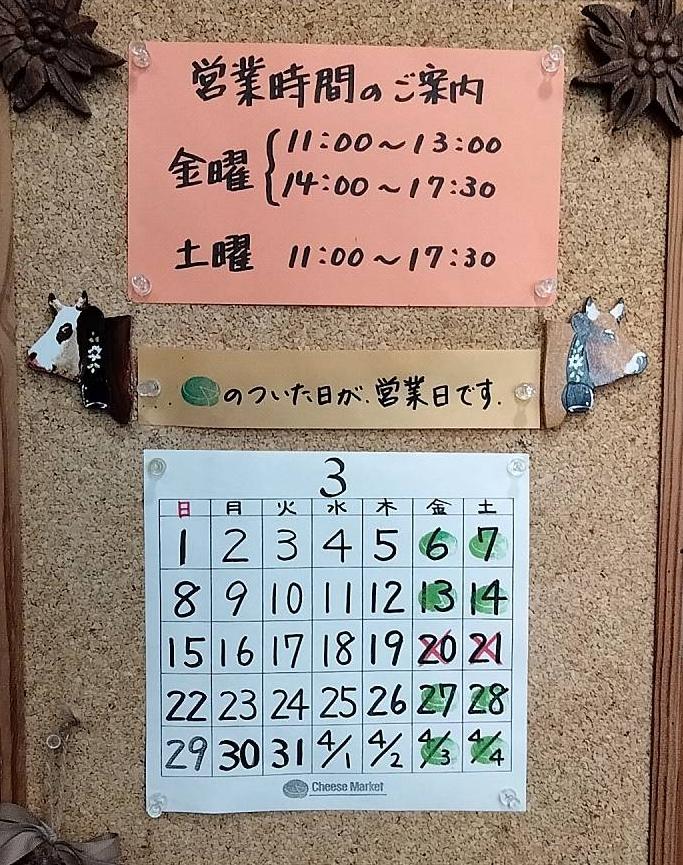 営業時間のご案内
金曜 11:00〜13:00
14:00〜17:30
土曜 11:00〜17:30
のついた日が、営業日です.
3
日 月 火 水 木 金 土
1 2 3 4 5 6 7
8 9 10 11 12 13 14
15 16 17 18 19 20 21
22 23 24 25 26 27 28
29 30 31 4/1 4/2 4/3 4/4
Cheese Market